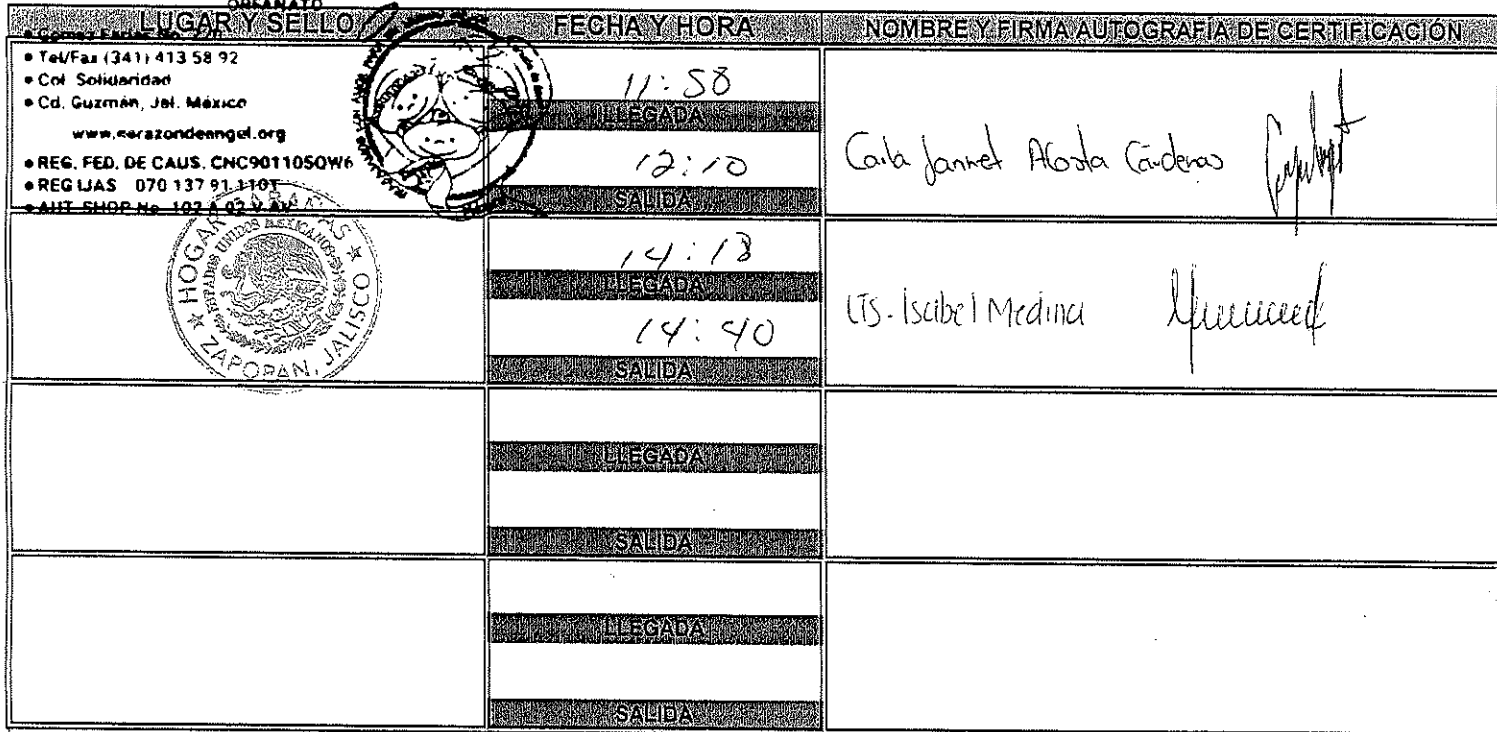 ORFANATO
LUGAR Y SELLO
FECHA Y HORA
NOMBRE Y FIRMA AUTOGRAFÍA DE CERTIFICACIÓN
• Tel/Fax (341) 413 58 92
• Col. Solidaridad
• Cd. Guzmán, Jal. México
www.corazondeangel.org
• REG. FED. DE CAUS. CNC901105QW6
• REG IJAS 070 137 91 110T
11:58
LLEGADA
12:10
SALIDA
Carla Jannet Acosta Cárdenas
HOGAR CABAÑAS
ESTADOS UNIDOS MEXICANOS
ZAPOPAN, JALISCO
14:13
LLEGADA
14:40
SALIDA
LTS. Isabel Medina
LLEGADA
SALIDA
LLEGADA
SALIDA